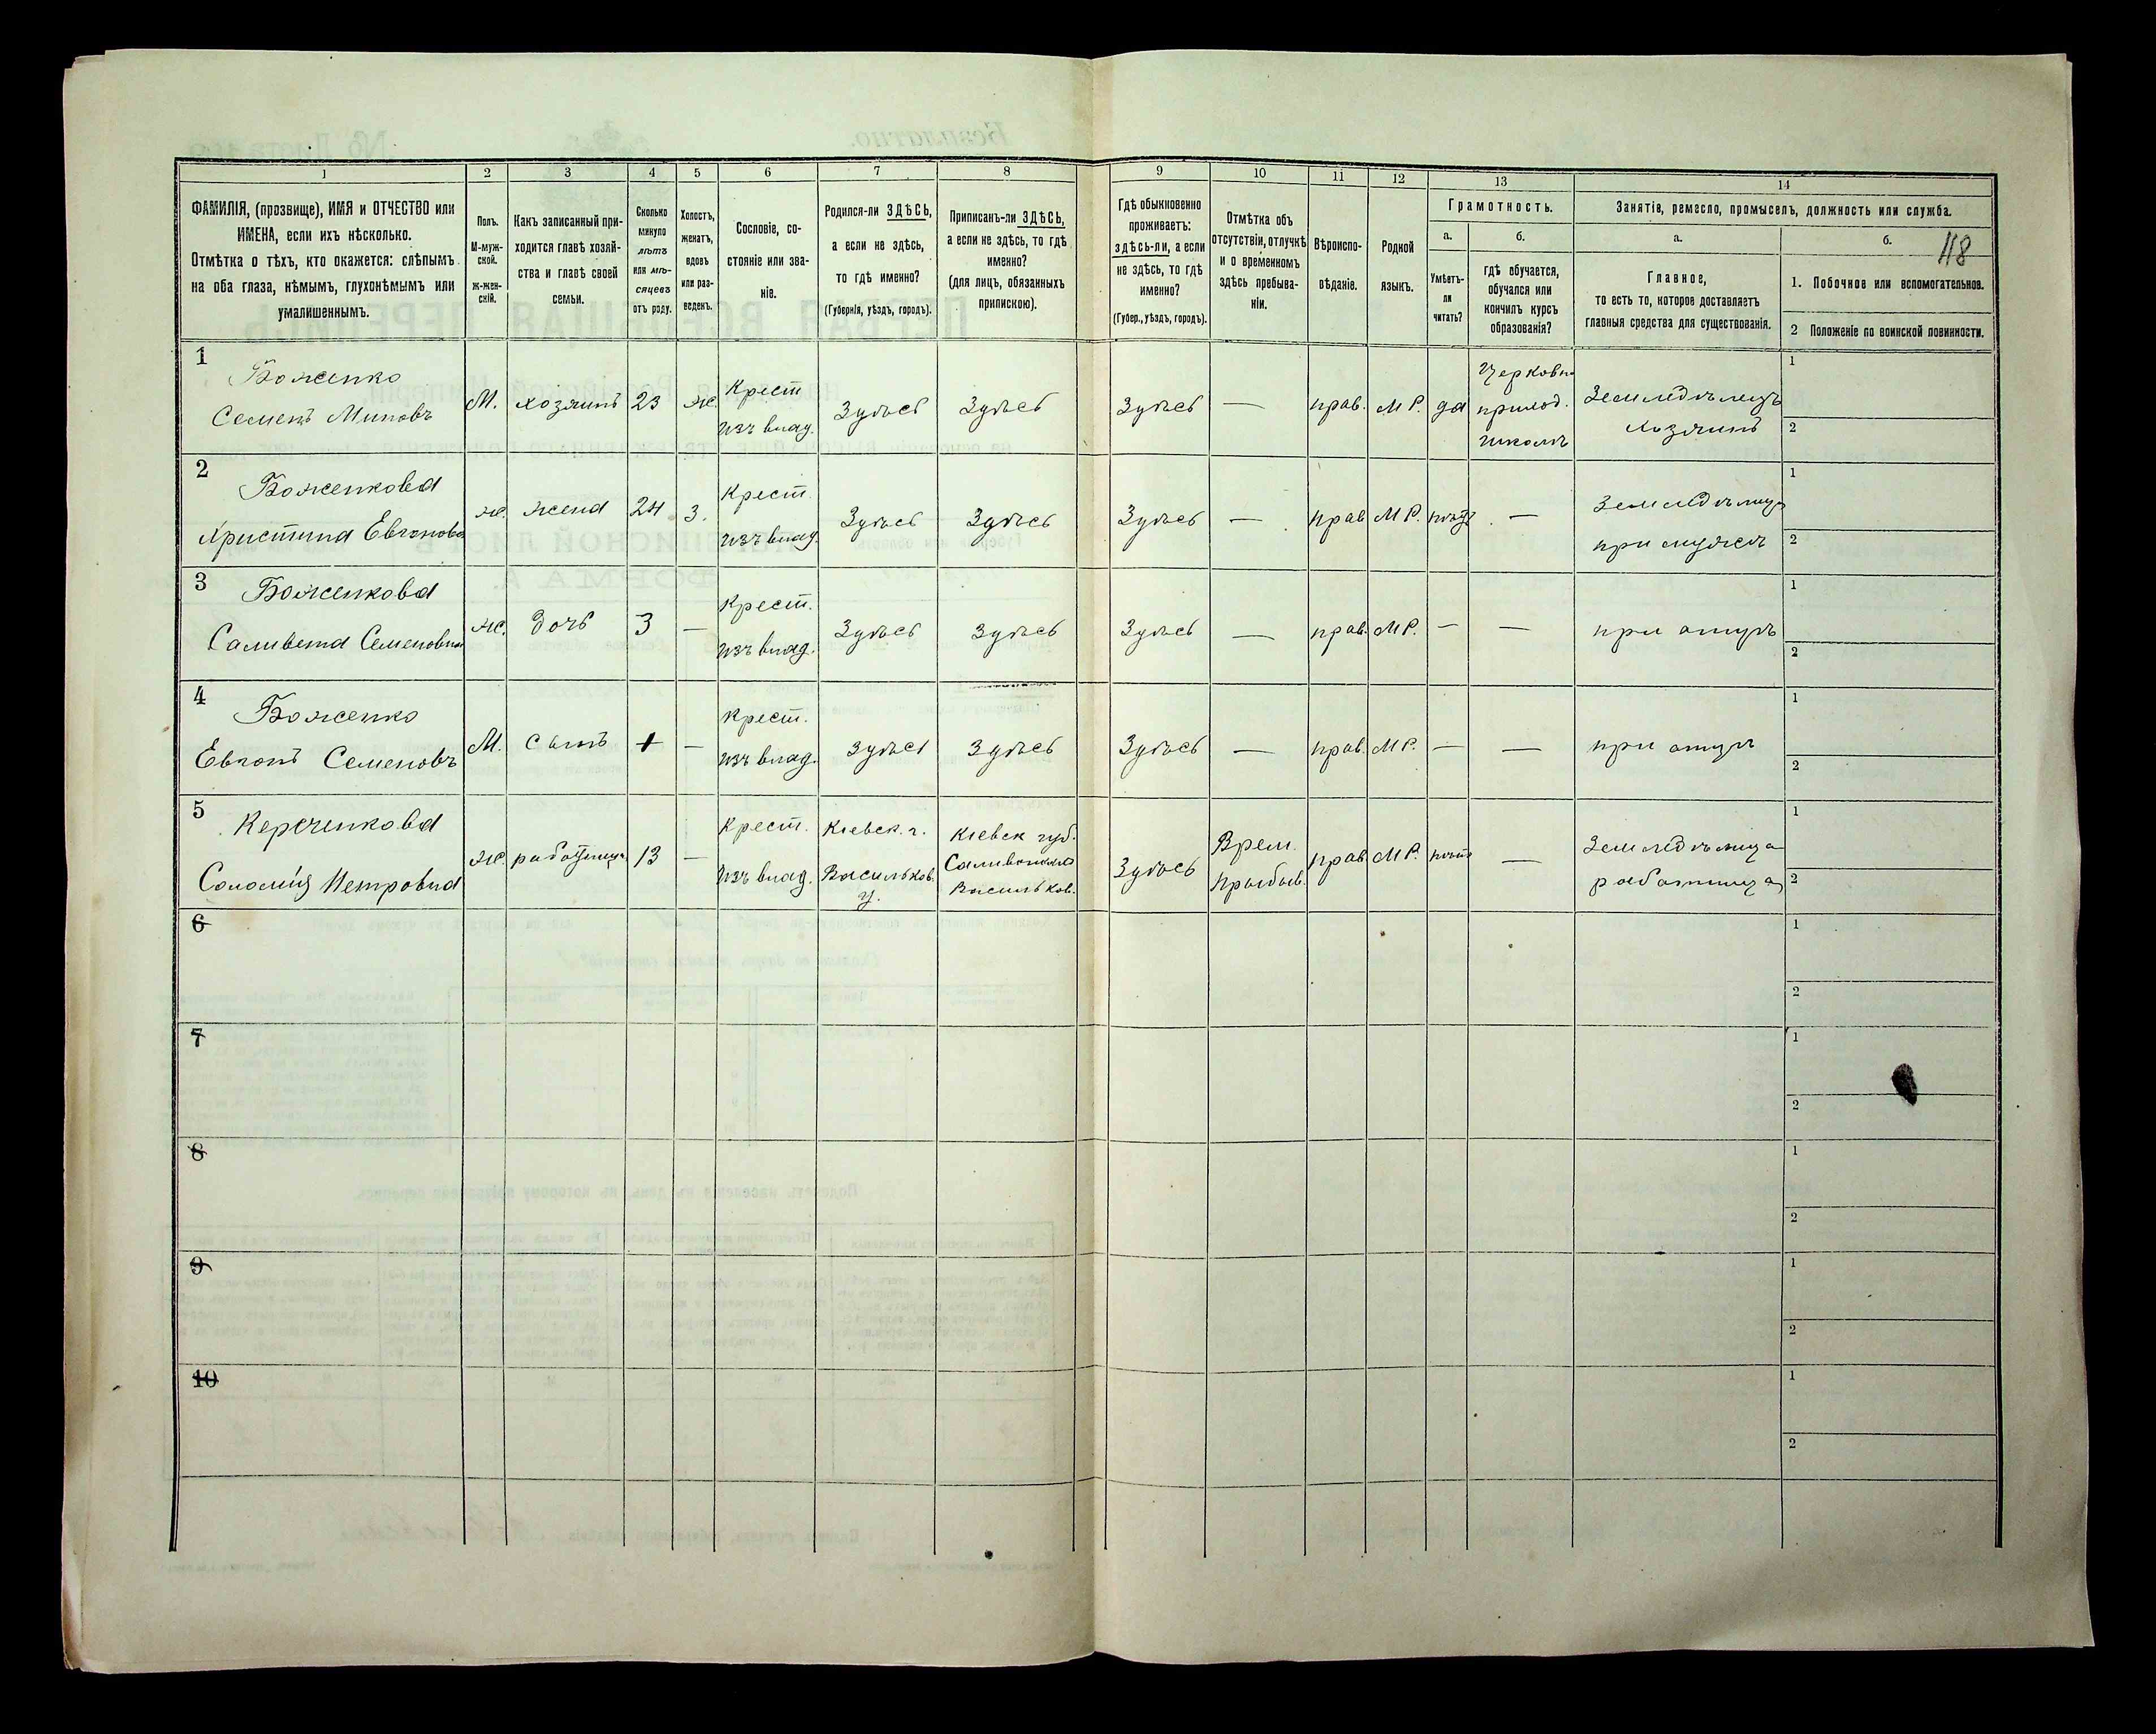 1 2 3 4 5 6 7 8 9 10 11 12 13 14
ФАМИЛІЯ, (прозвище), ИМЯ и ОТЧЕСТВО или
ИМЕНА, если ихъ нѣсколько.
Отмѣтка о тѣхъ, кто окажется: слѣпымъ
на оба глаза, нѣмымъ, глухонѣмымъ или
умалишеннымъ.
Полъ.
М-муж-
ской.
Ж-жен-
скій.
Какъ записанный при-
ходится главѣ хозяй-
ства и главѣ своей
семьи.
Сколько
минуло
лѣтъ
или мѣ-
сяцевъ
отъ роду.
Холостъ,
женатъ,
вдовъ
или раз-
веденъ.
Сословіе, со-
стояніе или зва-
ніе.
Родился-ли ЗДѢСЬ,
а если не здѣсь,
то гдѣ именно?
(Губернія, уѣздъ, городъ).
Приписанъ-ли ЗДѢСЬ,
а если не здѣсь, то гдѣ
именно?
(для лицъ, обязанныхъ
припискою).
Гдѣ обыкновенно
проживаетъ:
здѣсь-ли, а если
не здѣсь, то гдѣ
именно?
(Губер., уѣздъ, городъ).
Отмѣтка объ
отсутствіи, отлучкѣ
и о временномъ
здѣсь пребыва-
ніи.
Вѣроиспо-
вѣданіе.
Родной
языкъ.
Грамотность.
а.
Умѣетъ-
ли
читать?
б.
гдѣ обучается,
обучался или
кончилъ курсъ
образованія?
Занятіе, ремесло, промыселъ, должность или служба.
а.
Главное,
то есть то, которое доставляетъ
главныя средства для существованія.
б.
118
1. Побочное или вспомогательное.
2 Положеніе по воинской повинности.
1
Боженко
Семенъ Миновъ
М.
хозяинъ
23
Ж.
Крест
изъ влад.
Здѣсь
Здѣсь
Здѣсь
—
прав.
М Р.
да
Церковн
приход.
школѣ
Земледѣлецъ
хозяинъ
1
2
2
Боженкова
Христина Евгенова
Ж.
жена
24
З.
Крест.
изъ влад.
Здѣсь
Здѣсь
Здѣсь
—
прав
М Р.
нѣтъ
—
Земледѣлица
при мужѣ
1
2
3
Боженкова
Саливета Семеновна
Ж.
дочь
3
—
Крест.
изъ влад.
Здѣсь
Здѣсь
Здѣсь
—
прав.
М Р.
—
—
при отцѣ
1
2
4
Боженко
Семеновъ
М.
сынъ
1
—
Крест.
изъ влад.
Здѣсь
Здѣсь
Здѣсь
—
прав.
М Р.
—
—
при отцѣ
1
2
5
Керченкова
Соломія Петровна
Ж.
работница
13
—
Крест.
изъ влад.
Кіевск. г.
Васильков.
у.
Кіевск губ.
Васильков.
Здѣсь
Врем.
прибыв.
прав
М Р.
нѣтъ
—
Земледѣлица
работница
1
2
6
1
2
7
1
2
8
1
2
9
1
2
10
1
2